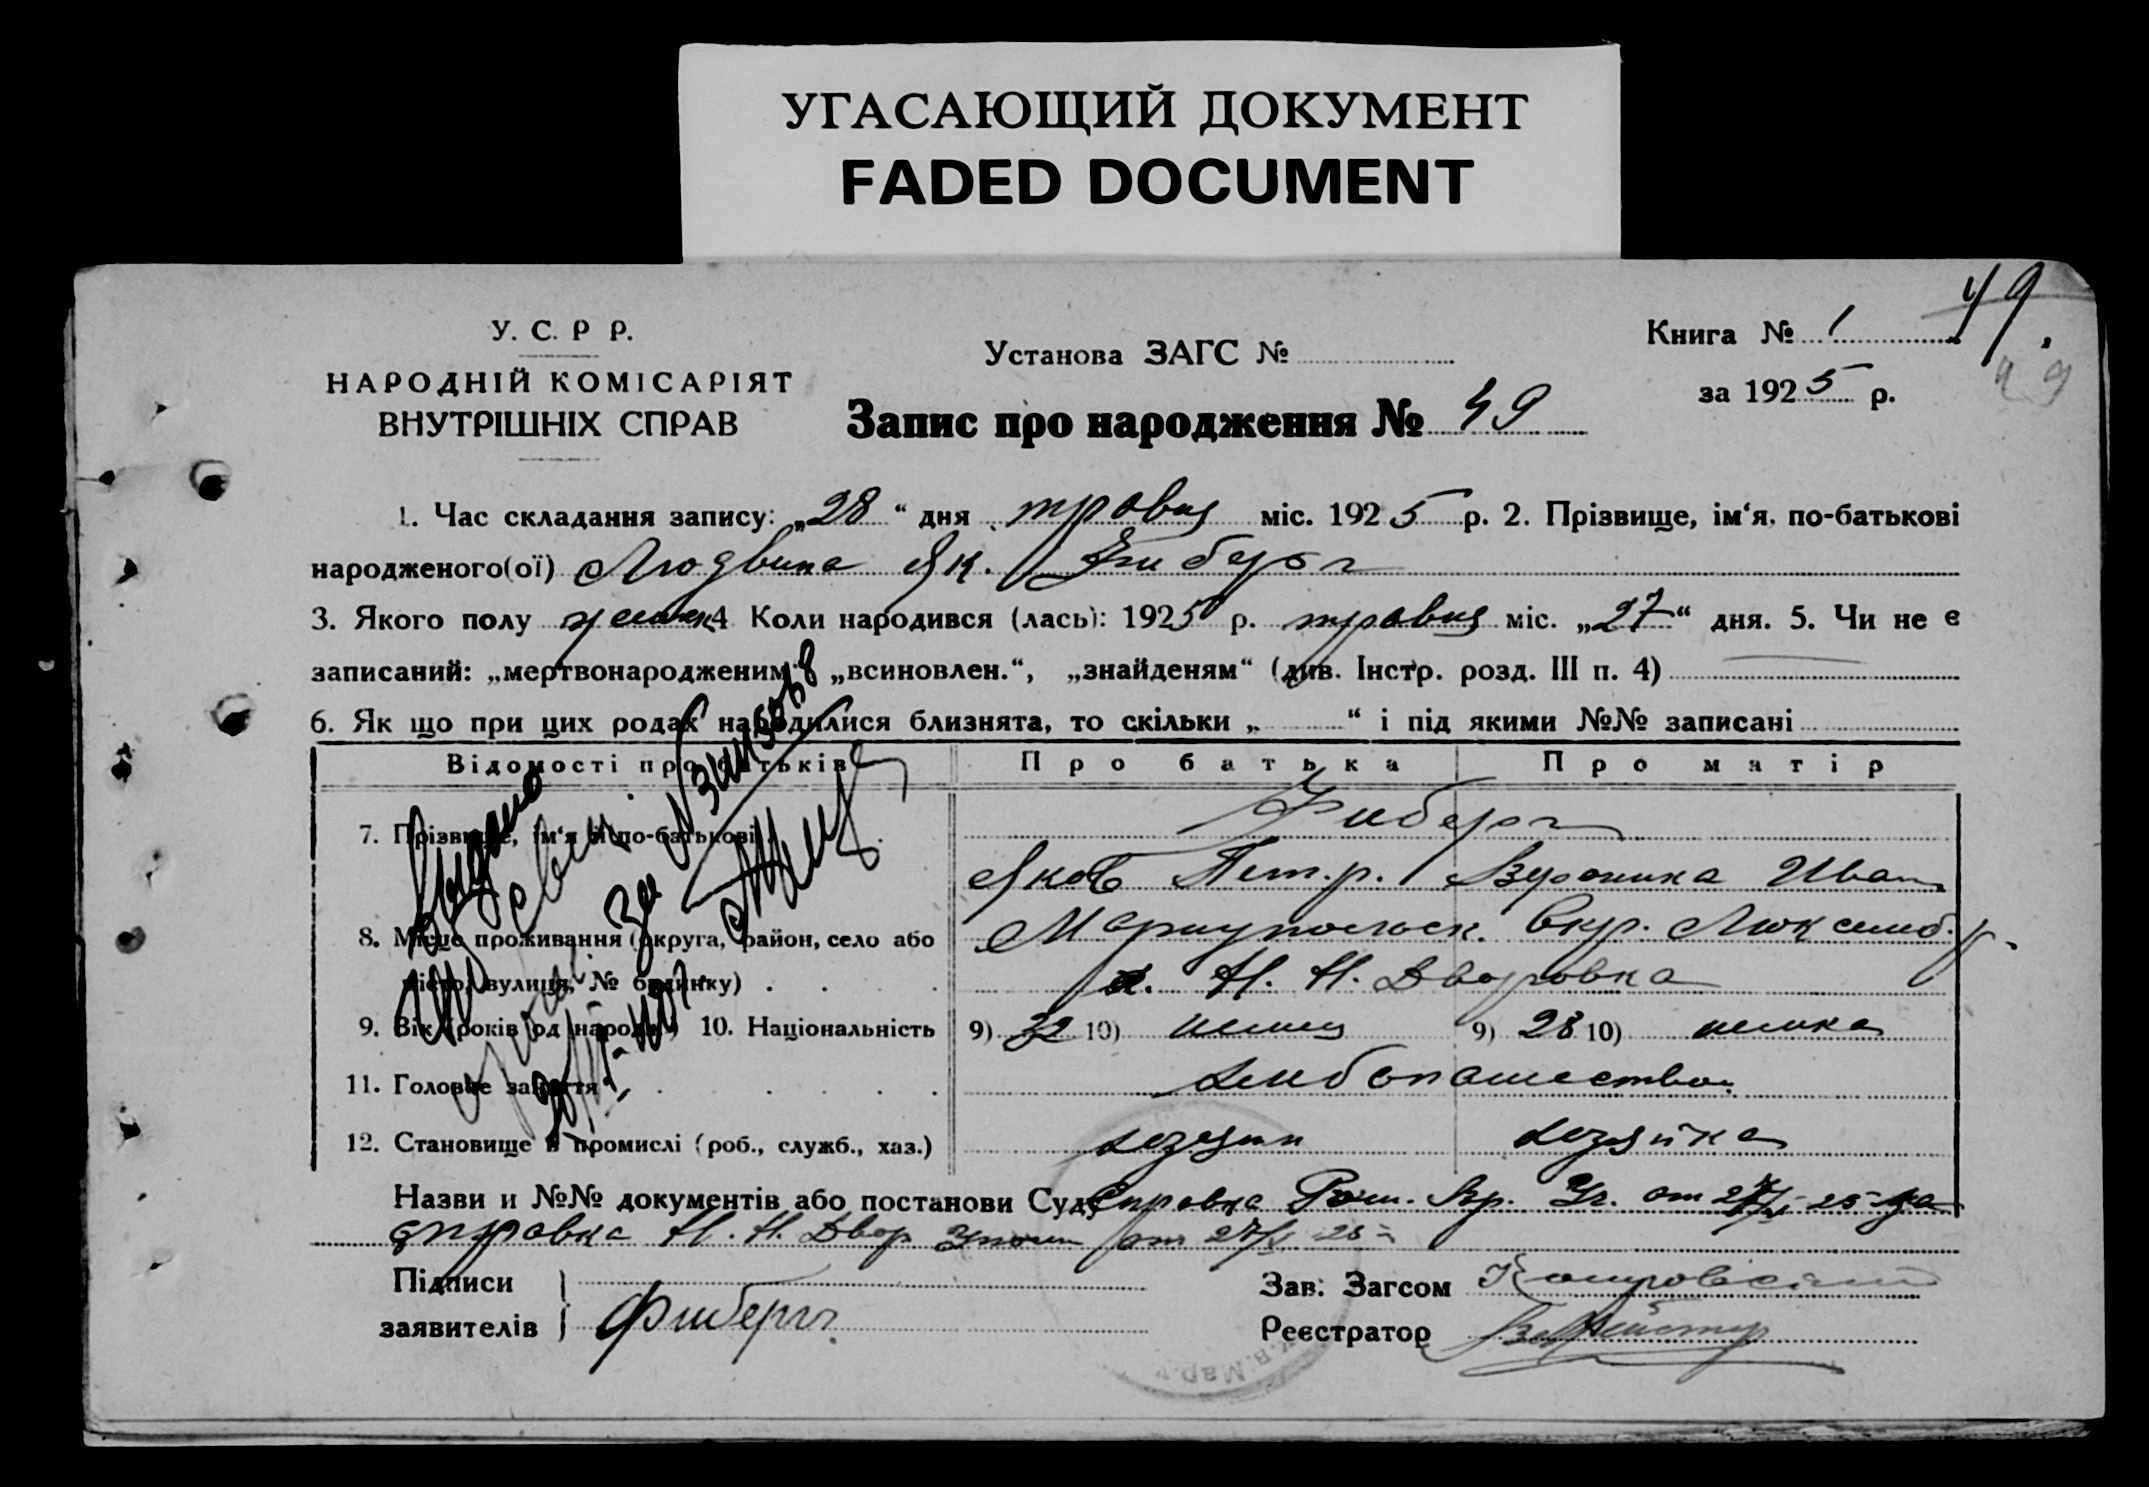 УГАСАЮЩИЙ ДОКУМЕНТ
FADED DOCUMENT
У. С. Р Р.
НАРОДНІЙ КОМІСАРІЯТ
ВНУТРІШНІХ СПРАВ
Установа ЗАГС №
Запис про народження № 49
Книга № 1
49.
за 1925 р.
49
1. Час складання запису: „28“ дня травня міс. 1925 р. 2. Прізвище, ім‘я, по-батькові
народженого(ої) Людвина Як. Фиберг
3. Якого полу женск 4 Коли народився (лась): 1925 р. травня міс. „27“ дня. 5. Чи не є
записаний: „мертвонародженим“, „всиновлен.“, „знайденям“ (див. Інстр. розд. III п. 4)
6. Як що при цих родах народилися близнята, то скільки „ “ і під якими №№ записані
Відомості про батьків Про батька Про матір
7. Прізвище, ім‘я й по-батькові Фиберг
Яков Петр. Вероника Иван
8. Місце проживання (округа, район, село або Мариупольск. Окр. Люксемб. р.
місто, вулиця, № будинку) Н. Н. Дворовка
9. Вік (років од народ.) 10. Національність 9) 32 10) немец 9) 28 10) немка
11. Головне заняття хлебопашество.
12. Становище в промислі (роб., служб., хаз.) хозяин хозяйка
Назви и №№ документів або постанови Суду Справка от 25 на
справка Н. Н. Двор от 27/V 25
Підписи
заявителів Фиберг
Зав. Загсом
Реєстратор